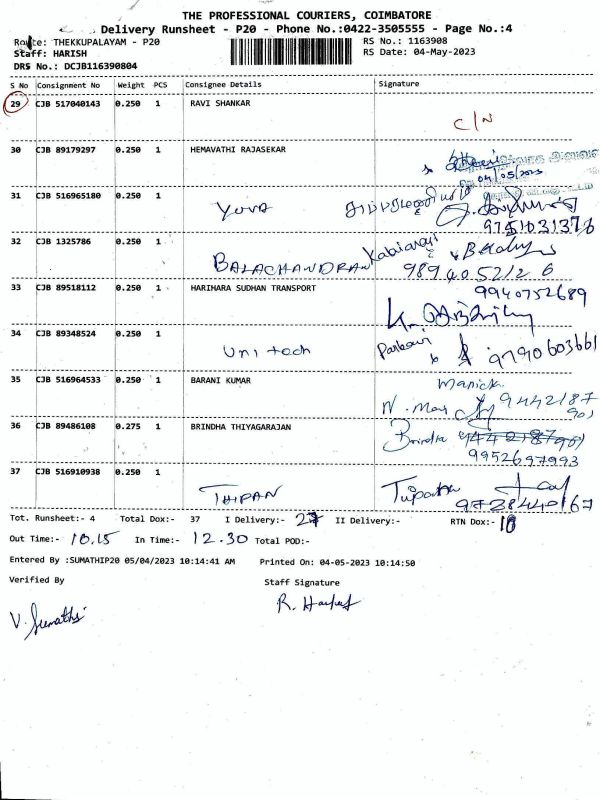 THE PROFESSIONAL COURIERS, COIMBATORE
Delivery Runsheet - P20 - Phone No.:0422-3505555 - Page No.:4
Route: THEKKUPALAYAM - P20
RS No.: 1163908
Staff: HARISH
RS Date: 04-May-2023
DRS No.: DCJB116390804
S No Consignment No Weight PCS Consignee Details Signature
29 CJB 517040143 0.250 1 RAVI SHANKAR C/N
30 CJB 89179297 0.250 1 HEMAVATHI RAJASEKAR
04/05/2023
31 CJB 516965180 0.250 1 Yuva
9751031376
32 CJB 1325786 0.250 1 BALACHANDRAN
9894052126
33 CJB 89518112 0.250 1 HARIHARA SUDHAN TRANSPORT 9940752689
34 CJB 89348524 0.250 1 Unitech 9790603661
35 CJB 516964533 0.250 1 BARANI KUMAR Manick
9442187
901
36 CJB 89486108 0.275 1 BRINDHA THIYAGARAJAN Brindha
9952697993
37 CJB 516910938 0.250 1 THIPAN
9728440167
Tot. Runsheet:- 4 Total Dox:- 37 I Delivery:- 27 II Delivery:- RTN Dox:- 10
Out Time:- 10.15 In Time:- 12.30 Total POD:-
Entered By :SUMATHIP20 05/04/2023 10:14:41 AM Printed On: 04-05-2023 10:14:50
Verified By Staff Signature
V. Sumathi
R. Harish